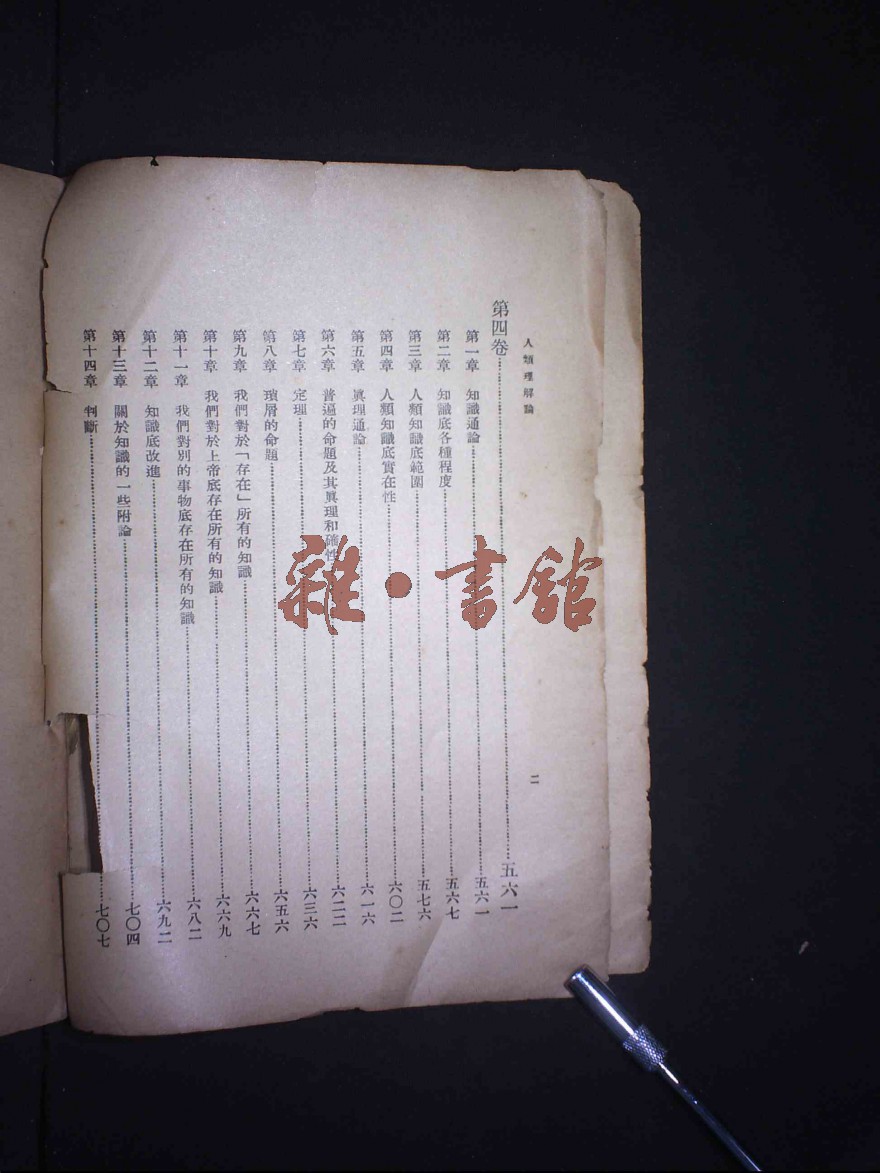 人類理解論
二
第四卷……五六一
第一章 知識通論……五六一
第二章 知識底各種程度……五六七
第三章 人類知識底範圍……五七六
第四章 人類知識底實在性……六〇二
第五章 眞理通論……六一六
第六章 普遍的命題及其眞理和確性……六二二
第七章 定理……六三六
第八章 瑣屑的命題……六五六
第九章 我們對於「存在」所有的知識……六六七
第十章 我們對於上帝底存在所有的知識……六六九
第十一章 我們對別的事物底存在所有的知識……六八二
第十二章 知識底改進……六九二
第十三章 關於知識的一些附論……七〇四
第十四章 判斷……七〇七
雜·書館